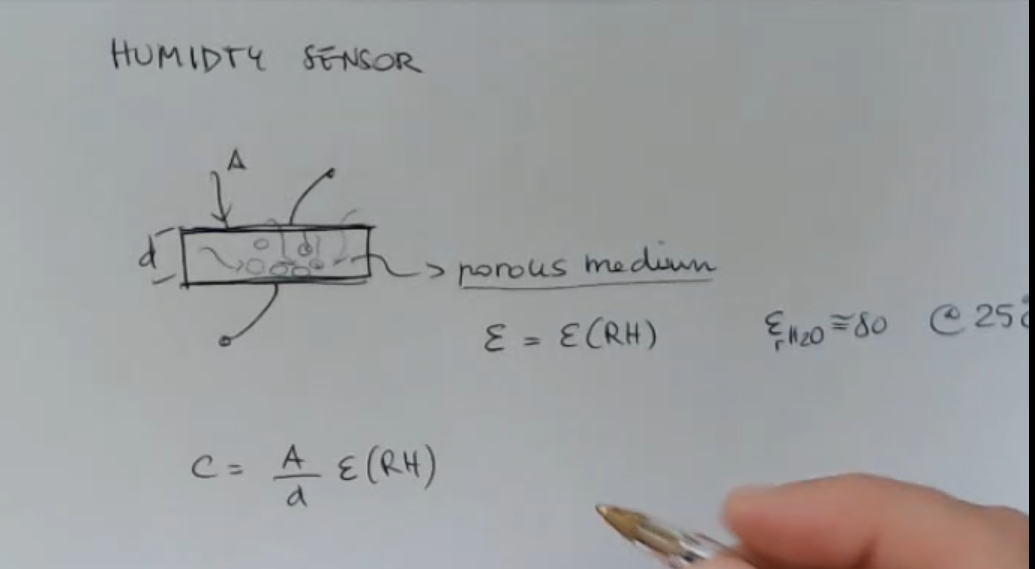 HUMIDTY SENSOR
A
d
porous medium
ε = ε(RH)
εrH2O ≅ 80 @ 25
C = A/d ε(RH)